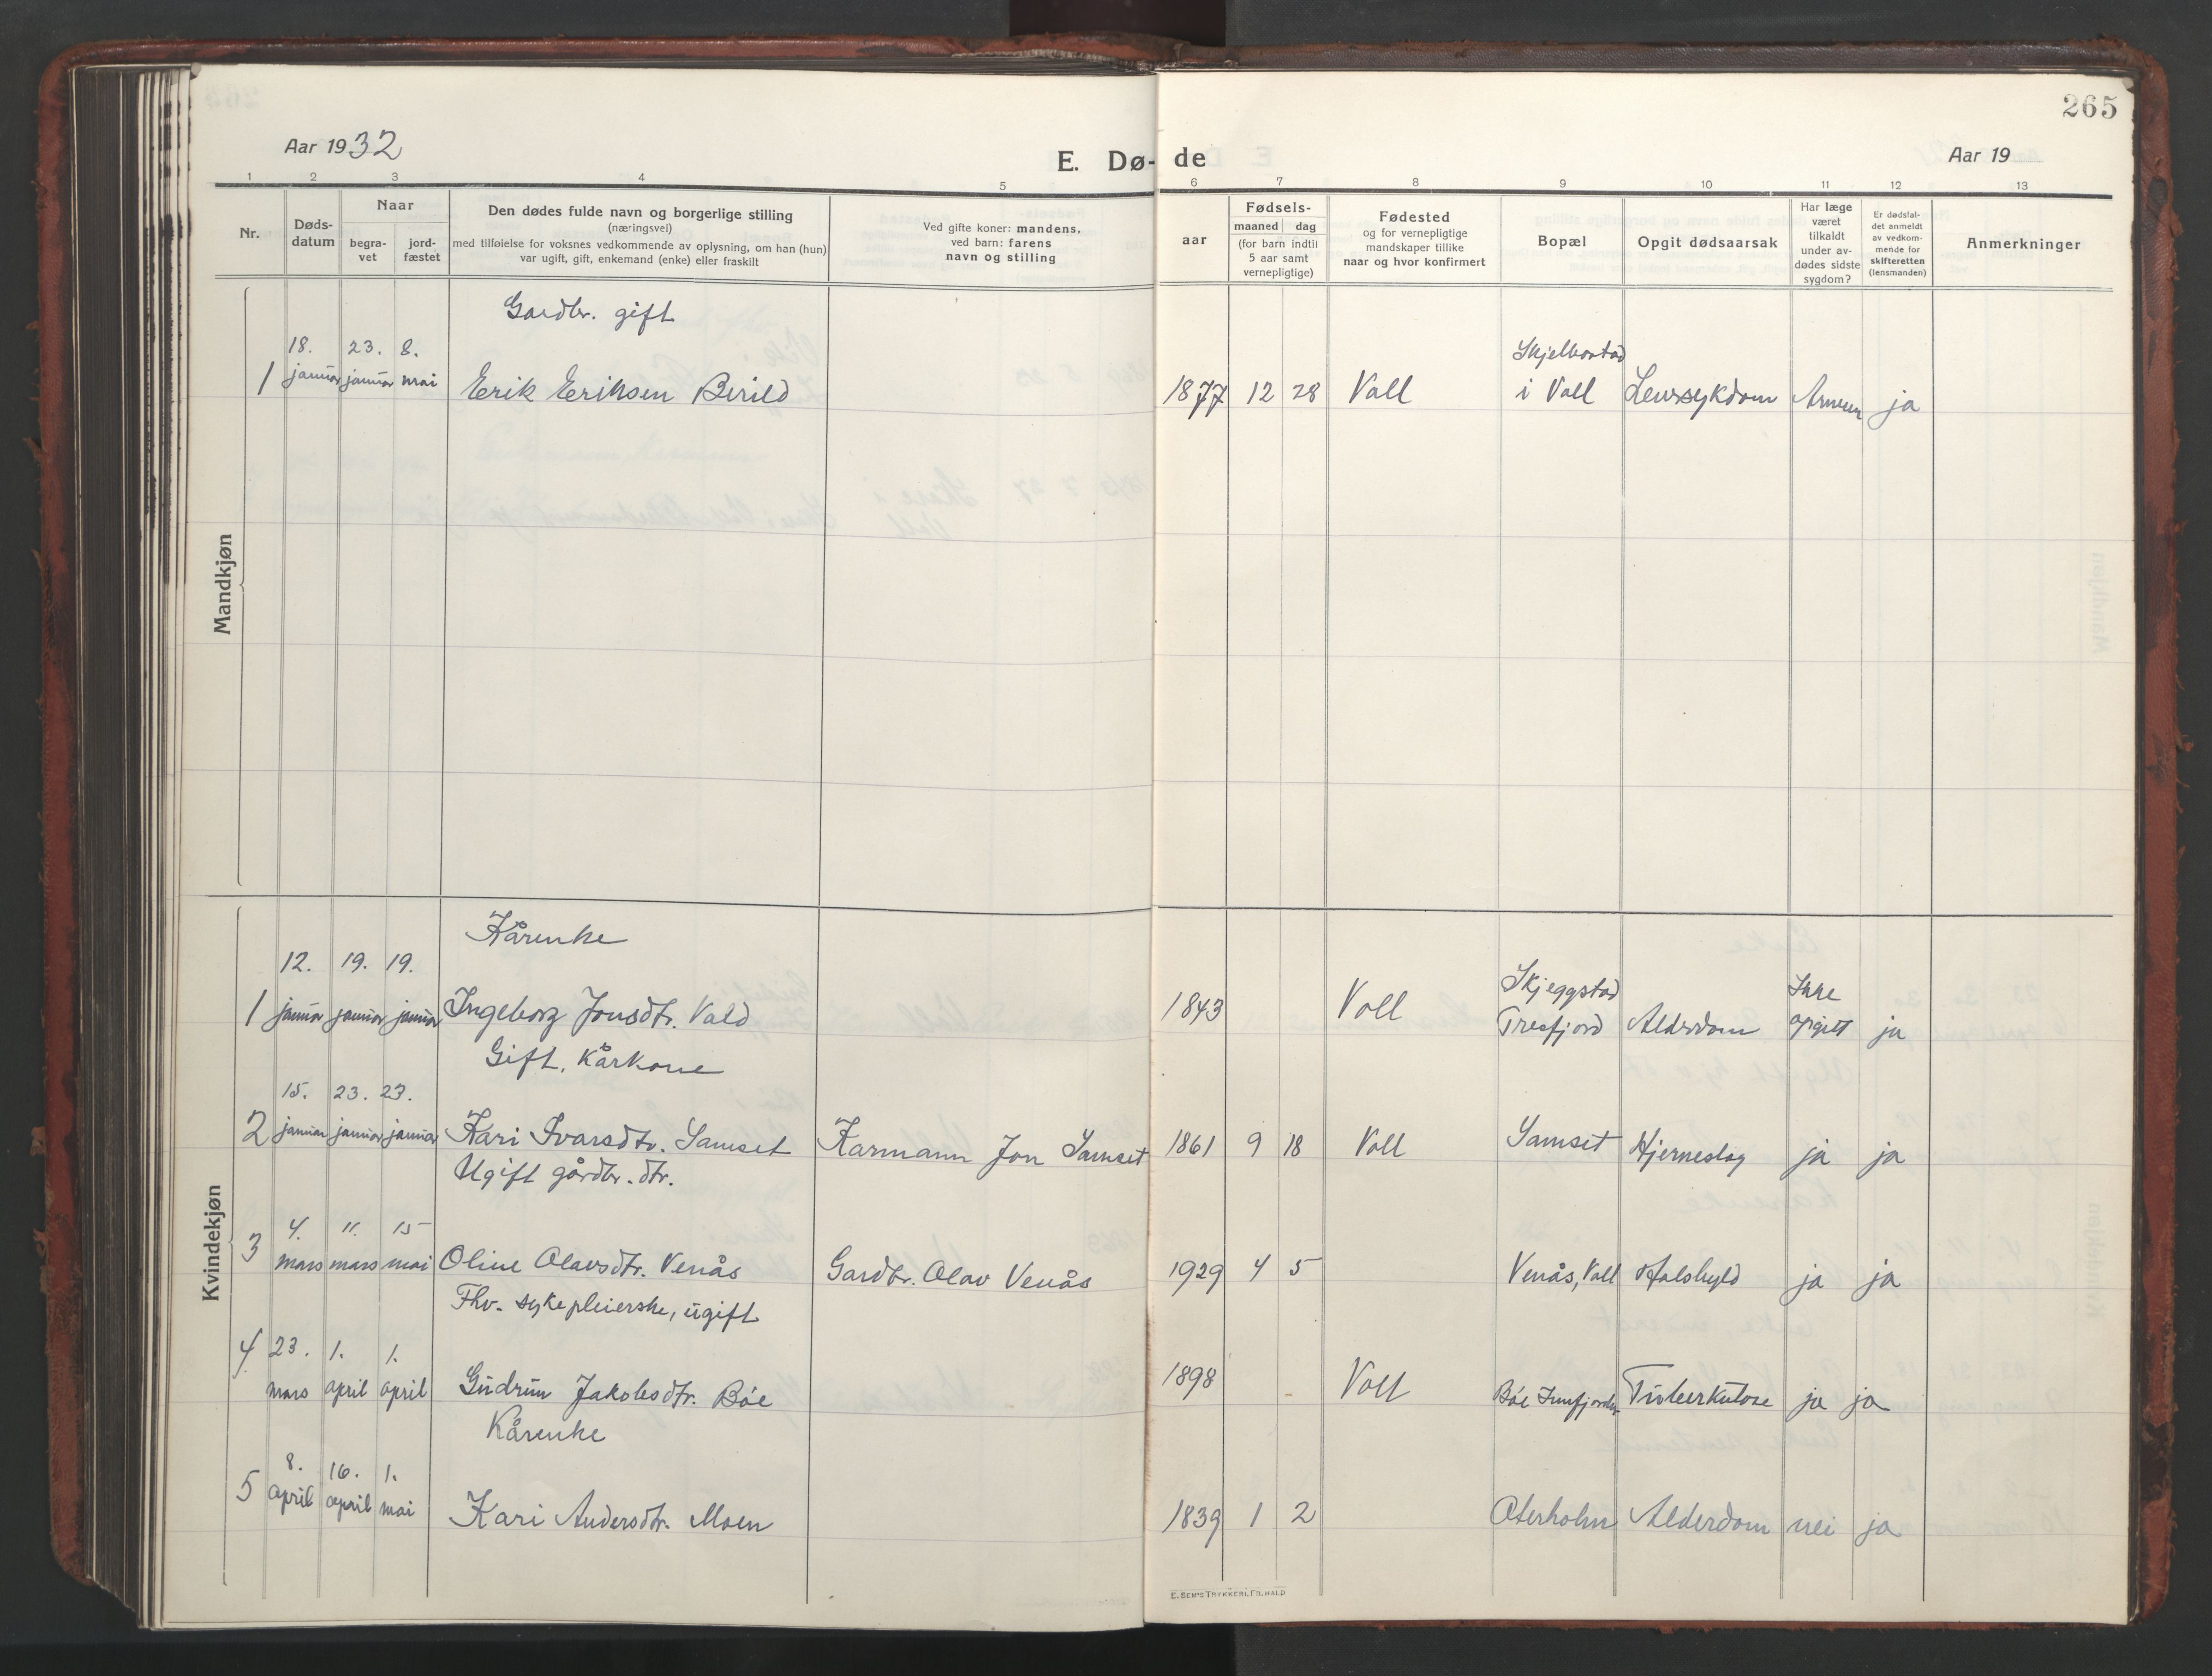 265
Aar 1932
E. Dø- de
Aar 19
1 2 3 4 5 6 7 8 9 10 11 12 13
Nr.
Døds-
datum
Naar
begra-
vet
jord-
fæstet
Den dødes fulde navn og borgerlige stilling
(næringsvei)
med tilføielse for voksnes vedkommende av oplysning, om han (hun)
var ugift, gift, enkemand (enke) eller fraskilt
Ved gifte koner: mandens,
ved barn: farens
navn og stilling
aar
Fødsels-
maaned dag
(for barn indtil
5 aar samt
vernepligtige)
Fødested
og for vernepligtige
mandskaper tillike
naar og hvor konfirmert
Bopæl
Opgit dødsaarsak
Har læge
været
tilkaldt
under av-
dødes sidste
sygdom?
Er dødsfal-
det anmeldt
av vedkom-
mende for
skifteretten
(lensmanden)
Anmerkninger
Mandkjøn
Gardbr. gift
18. 23. 8. Skjelbostad
1 januar januar mai Erik Eriksen Birild 1877 12 28 Voll i Voll ja
Kvindekjøn
Kårenke
12. 19. 19. Skjeggstad Ikke
1 januar januar januar Ingeborg Jonsdtr. Vold 1843 Voll Tresfjord Alderdom opgitt ja
Gift, Kårkone
15. 23. 23.
2 januar januar januar Kari Ivarsdtr. Samset Karmann Jon Samset 1861 9 18 Voll Samset Hjerneslag ja ja
Ugift gårdbr. dtr.
4. 11. 15
3 mars mars mai Oline Olavsdtr. Venås Gardbr. Olav Venås 1929 4 5 Venås, Voll Halsbyld ja ja
Fhv. sykepleierske, ugift
4 23. 1. 1.
mars april april Gudrun Jakobsdtr. Bøe 1898 Voll Bøe Innfjorden Tuberkulose ja ja
Kårenke
8. 16. 1.
5 april april mai Kari Andersdtr. Moen 1839 1 2 Oterholm Alderdom nei ja
E. SEM'S TRYKKERI, FR. HALD